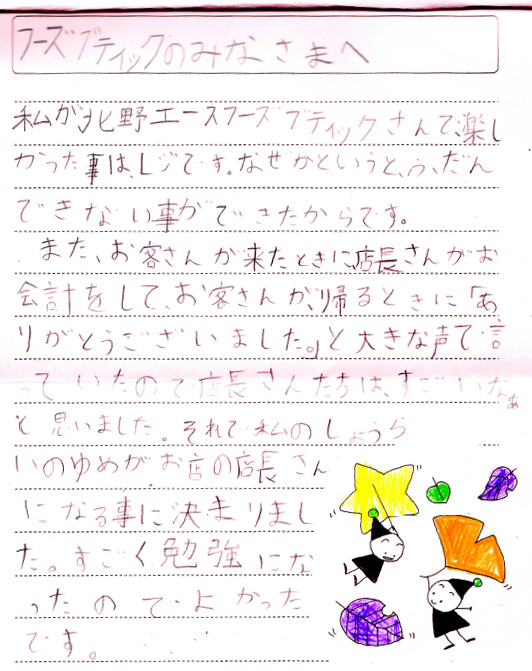 フーズブティックのみなさまへ
私が、北野エースフーズブティックさんで、楽し
かった事は、レジです。なぜかというと、ふだん
できない事ができたからです。
また、お客さんが来たときに店長さんがお
会計をして、お客さんが、帰るときに「あ
りがとうございました。」と大きな声で言
っていたので店長さんたちは、すごいなぁ
と思いました。それで私のしょうら
いのゆめがお店の店長さん
になる事に決まりまし
た。すごく勉強にな
ったのでよかった
です。